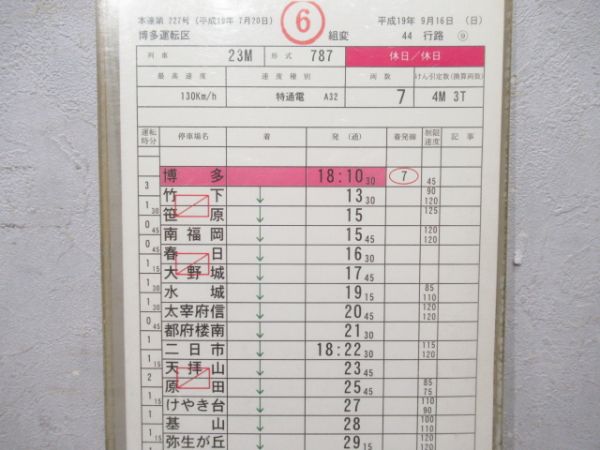 本達第 227号 (平成19年 7月20日) ⑥ 平成19年 9月16日 (日)
博多運転区 組変 44 行路 ⑨
列車 23M 形式 787 休日/休日
最高速度 速度種別 両数 けん引定数(換算両数)
130Km/h 特通電 A32 7 4M 3T
運転時分 停車場名 着 発 (通) 着発線 制限速度 記事
博多 18:10 30 ⑦ 45
3
竹下 ↓ 13 30 90 120
1 30
笹原 ↓ 15 125
0 45
南福岡 ↓ 15 45 120 120
0 45
春日 ↓ 16 30
1 15
大野城 ↓ 17 45
1 30
水城 ↓ 19 15 85 110
1 30
太宰府信 ↓ 20 45 120 120
0 45
都府楼南 ↓ 21 30
1
二日市 ↓ 18:22 30 115 120
1 15
天拝山 ↓ 23 45
2
原田 ↓ 25 45 85 75
1 15
けやき台 ↓ 27 110 90
1
基山 ↓ 28 100 110
1 15
弥生が丘 ↓ 29 15 120 120